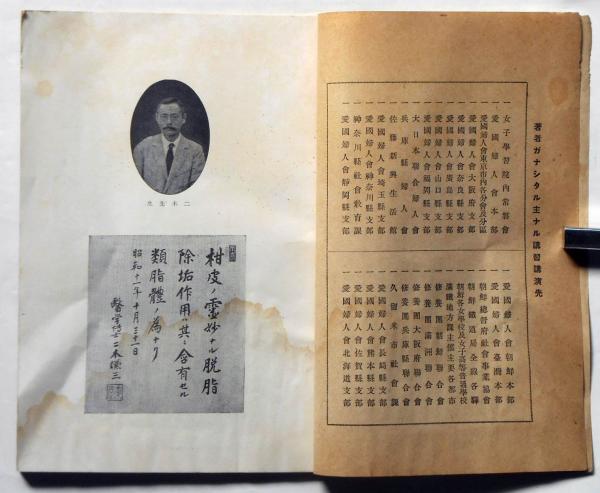 著者ガナシタル主ナル講習講演先
一女子學習院內常磐會
一愛國婦人會本部
一愛國婦人會東京市內各分會及分區
一愛國婦人會大阪府支部
一愛國婦人會奈良縣支部
一愛國婦人會廣島縣支部
一愛國婦人會山口縣支部
一愛國婦人會福岡縣支部
一大日本聯合婦人會
一兵庫縣婦人會
一佐藤新興生活館
一愛國婦人會埼玉縣支部
一愛國婦人會神奈川縣支部
一神奈川縣社會教育課
一愛國婦人會靜岡縣支部
一愛國婦人會朝鮮本部
一愛國婦人會臺灣本部
一朝鮮總督府社會事業協會
一朝鮮鐵道局全線各驛
一朝鮮各女學校及女子高等普通學校
一滿鐵地方課主催主要各都市
一修養團朝鮮聯合會
一修養團滿洲聯合會
一修養團大阪府聯合會
一修養團兵庫縣聯合會
一久留米市社會課
一愛國婦人會長崎縣支部
一愛國婦人會熊本縣支部
一愛國婦人會佐賀縣支部
一愛國婦人會北海道支部
二木先生
柑皮ノ靈妙ナル脫脂
除垢作用ハ其ニ含有セル
類脂體ノ為ナリ
昭和十一年十月三十一日
醫学博士二木謙三